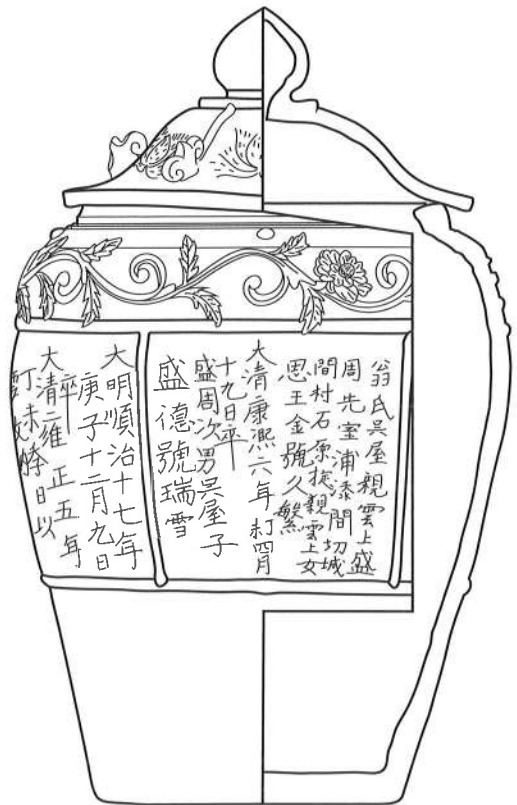 翁氏呉屋親雲上盛
周先室浦添間切城
間村石原掟親雲上女
思王金號久繁
大清康熙六年丁未四月
十九日卒
盛周次男呉屋子
盛德號瑞雪
大明順治十七年
庚子十二月九日
卒
大清維正五年
丁未 日以